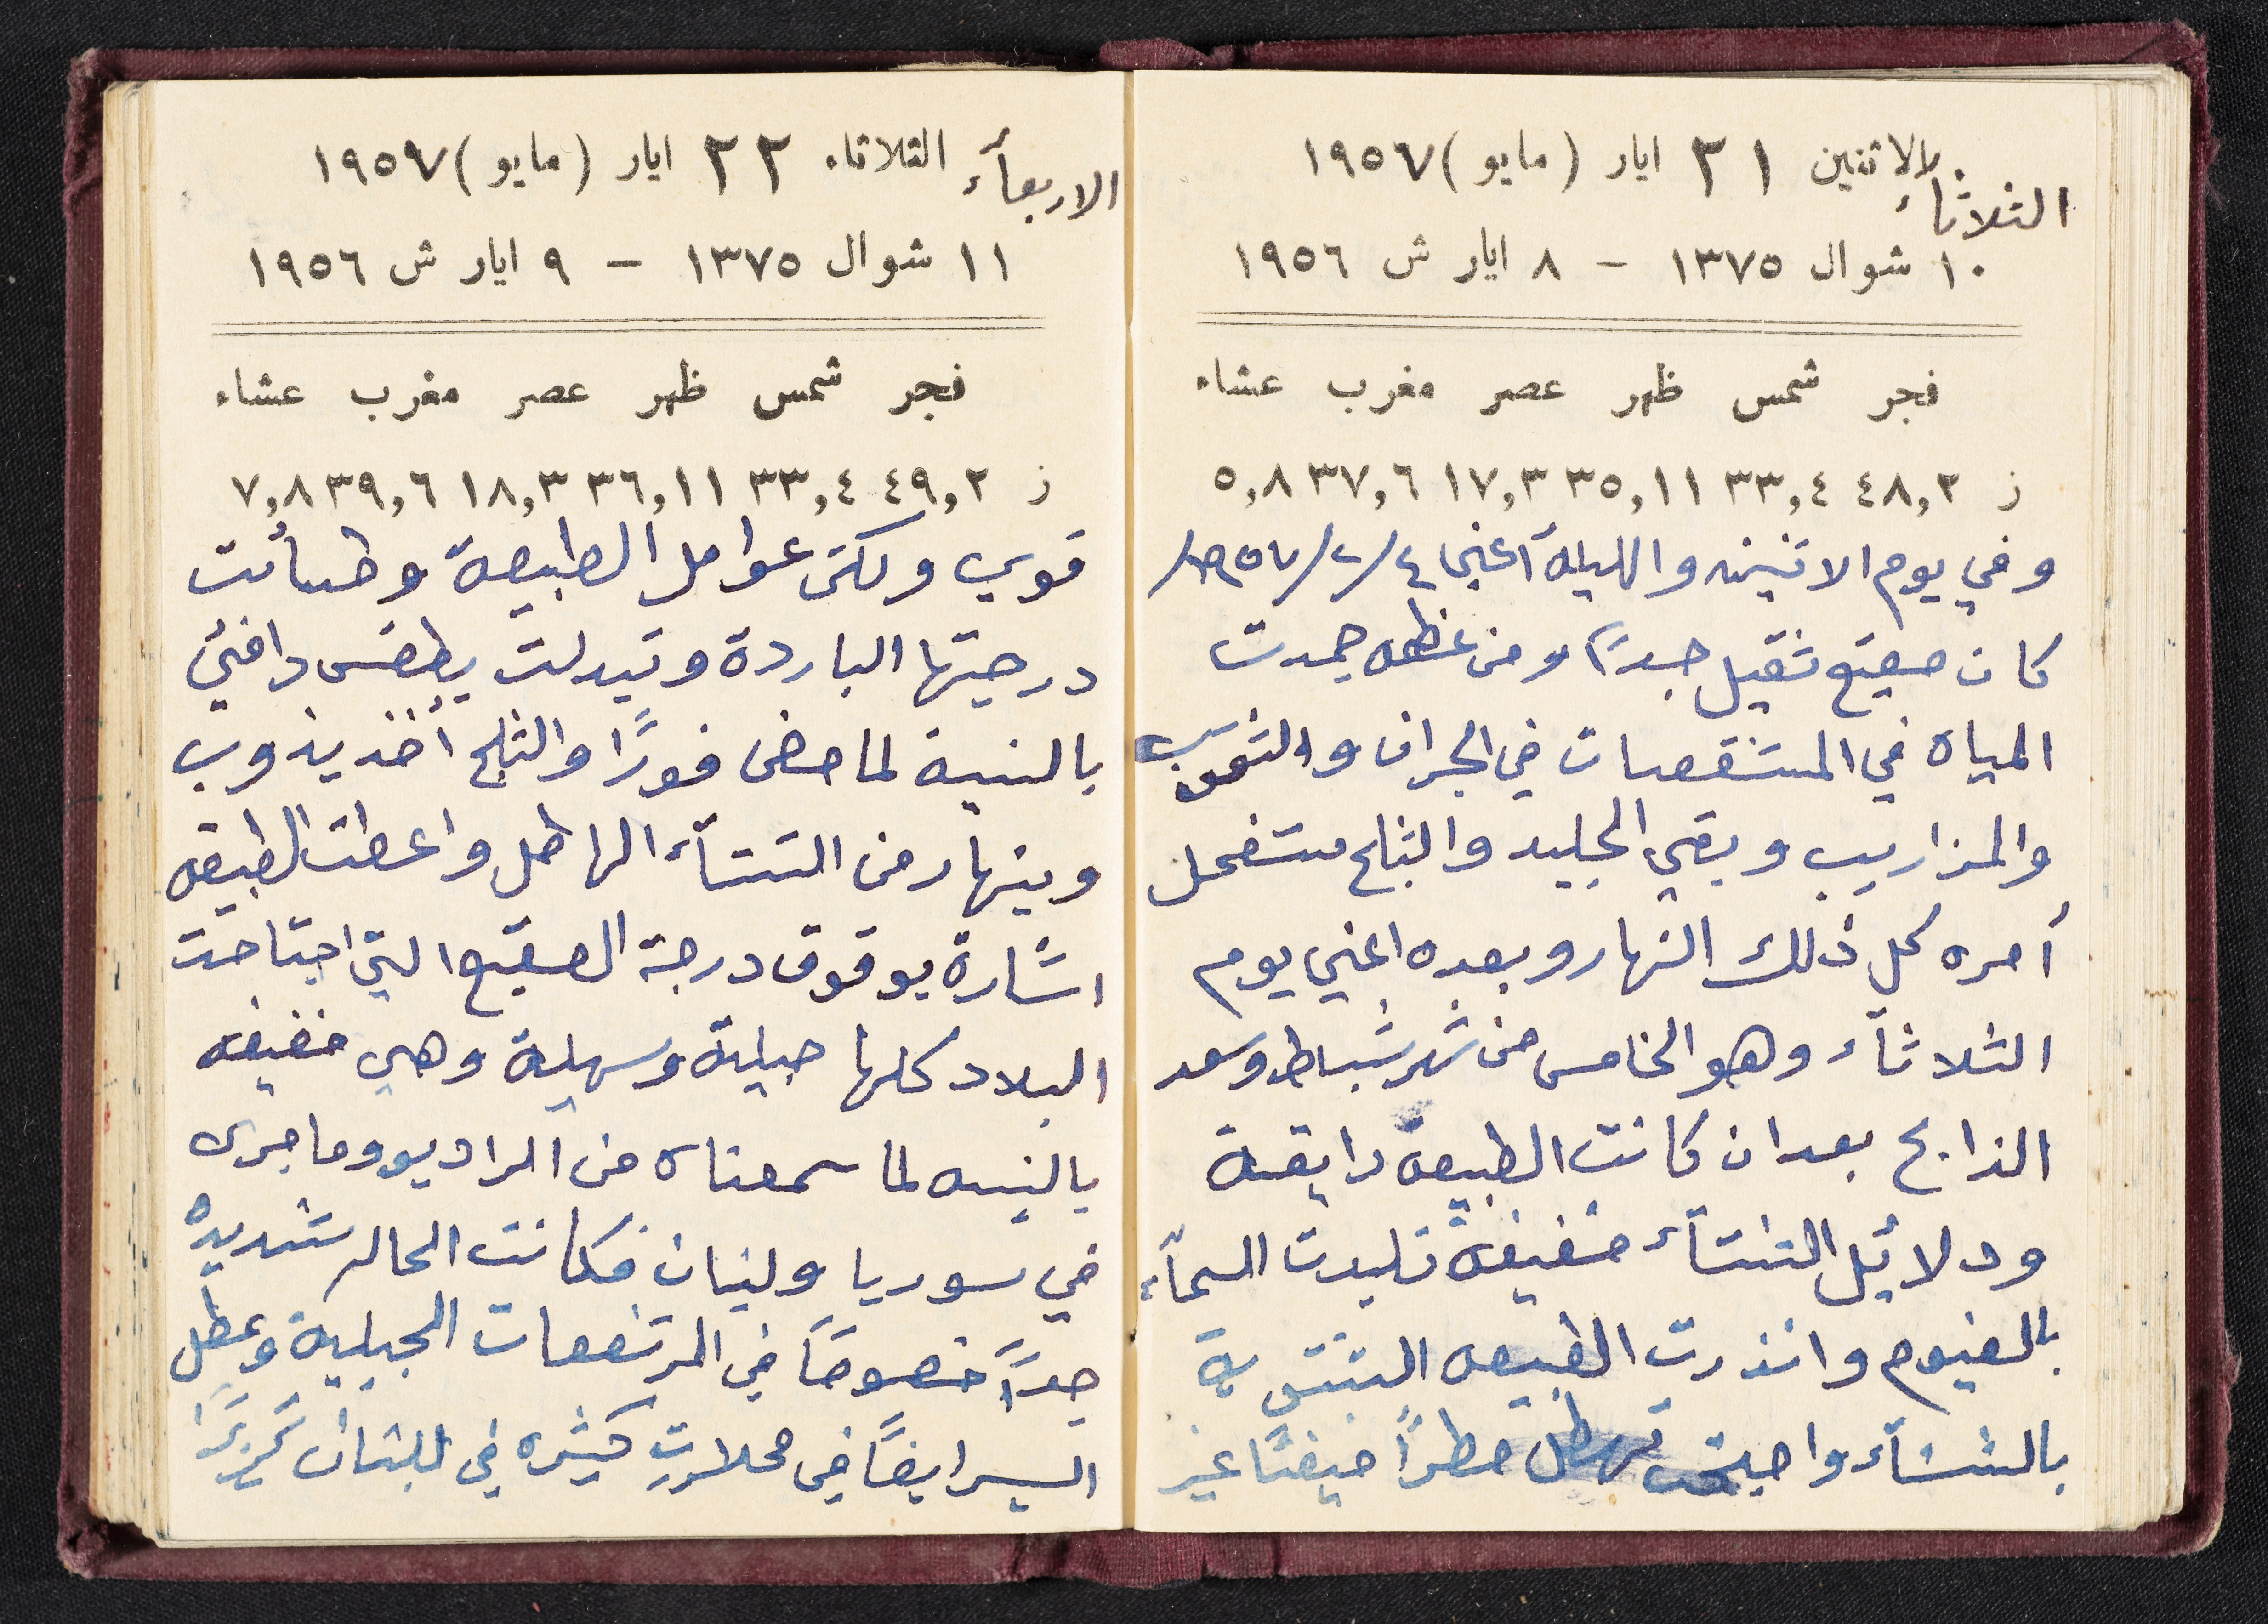 الاثنين ٢١ ايار (مايو) ١٩٥٧
الثلاثاء
١٠ شوال ١٣٧٥ – ٨ ايار ش ١٩٥٦
فجر شمس ظهر عصر مغرب عشاء
ز ٤٨,٢ ٣٣,٤ ٣٥,١١ ١٧,٣ ٣٧,٦ ٥,٨
وفي يوم الاثنين والليلة أعني ٤/٢/١٩٥٧/
كان صقيع ثقيل جداً ومن عظمه جمدت
المياه في المستنقعات في الجران و
والمزاريب وبقي الجليد والثلج مستفحل
أمره كل ذلك النهار وبعده اعني يوم
الثلاثآء وهو الخامس من شهر شباط وسعد
الذابح بعد ان كانت الطبيعه رايقة
ودلائل الشتآء خفيفة تلبدت السمآء
بالغيوم وانذرت الطبيعه الشتوية
بالشتآء واصبحت تهطل مطراً خفيفاً غير
الثلاثاء ٢٢ ايار (مايو) ١٩٥٧
الاربعآء
١١ شوال ١٣٧٥ – ٩ ايار ش ١٩٥٦
فجر شمس ظهر عصر مغرب عشاء
ز ٤٩,٢ ٣٣,٤ ٣٦,١١ ١٨,٣ ٣٩,٦ ٧,٨
قوي ولكن عوامل الطبيعة وطأت
درجتها الباردة وتبدلت بطقس دافئ
بالنسبة لما مضى فوراً والثلج أخذ يذوب
وينهار من الشتآء الهاطل واعطت الطبيعه
اشارة بوقوف درجة الصقيع التي اجتاحت
البلاد كلها جبلية وسهلية وهي خفيفه
بالنسبه لما سمعناه من الراديو وما جرى
في سوريا ولبنان فكانت الحاله شديده
جداً خصوصاً في المرتفعات الجبلية وعطل
السير ايضاً في محلات كثيره في لبنان